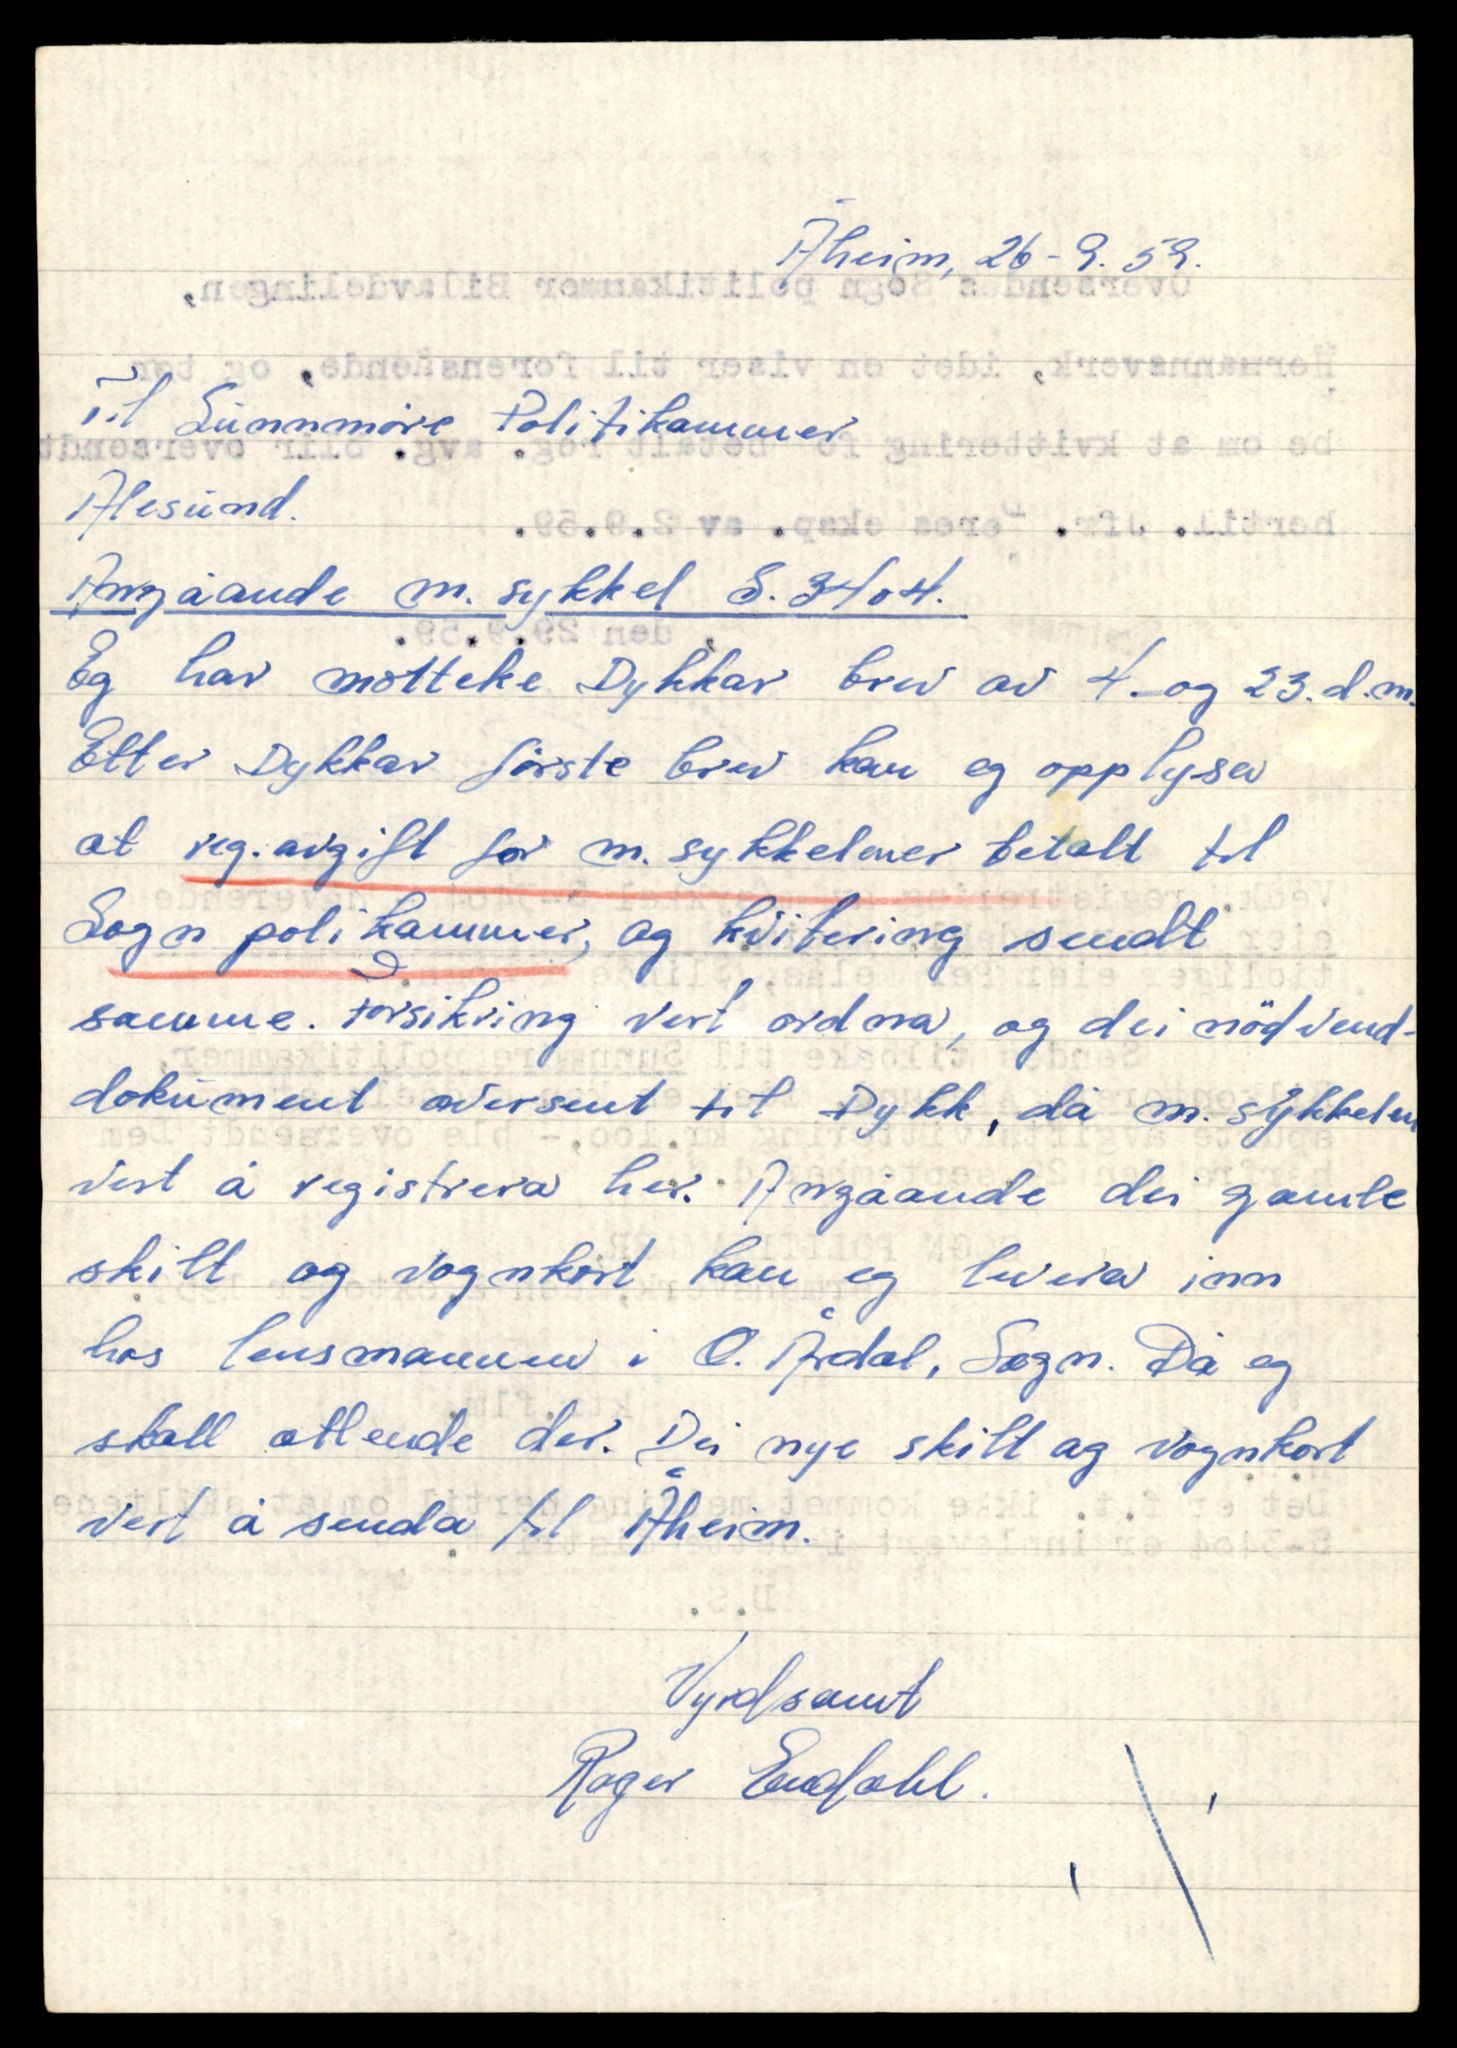 Åheim, 26-9.59.
Til Sunnmöre Politikammer
Ålesund.
Angåande m. sykkel S. 3404.
Eg har motteke Dykkar brev av 4. og 23. d.m.
Etter Dykkar förste brev kan eg opplysa
at reg. avgift for m. sykkelen er betalt til
Sogn polikammer, og kvitering sendt
samme. Forsikring vert ordna, og dei nödvend-
dokument oversent til Dykk, då m. sykkelen
vert å registrera her. Angåande dei gamle
skilt og vognkort kan eg levera inn
hos lensmannen i Ö. Årdal, Sogn. Då eg
skall attende der. Dei nye skilt og vognkort
vert å senda til Åheim.
Vyrdsamt
Roger